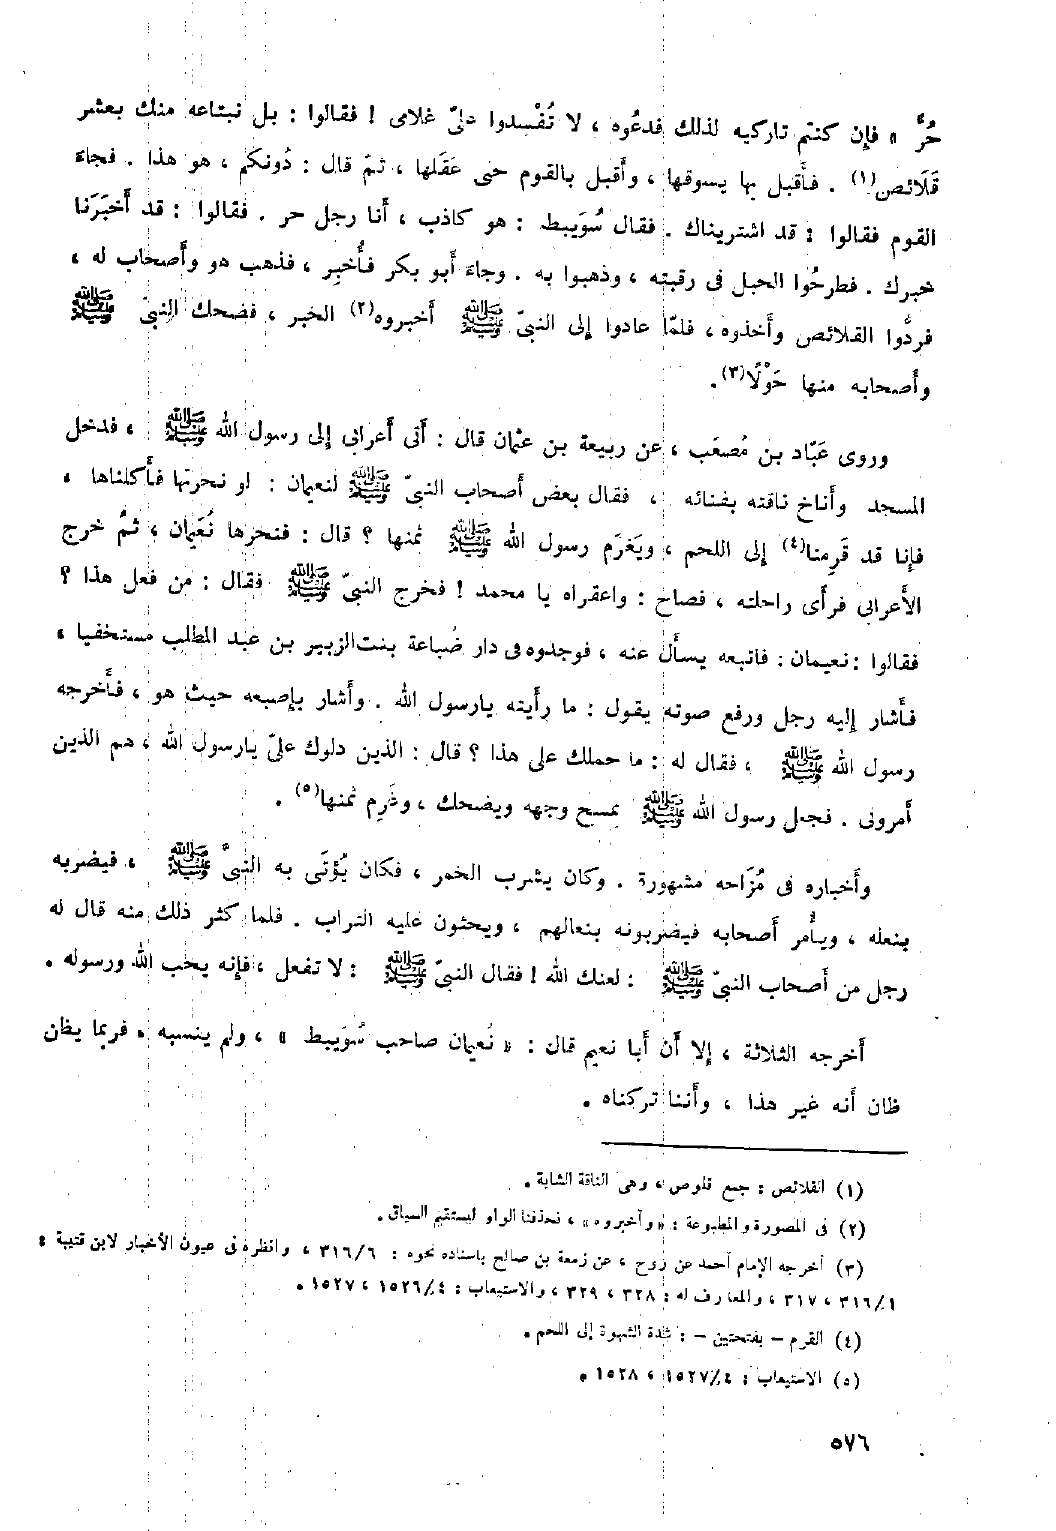 حُرٌّ » فإن كنتم تاركيه لذلك فدعُوه ، لا تُفْسدوا علىّ غلامى ! فقالوا : بل نبتاعه منك بعشر
قَلَائص(١) . فأَقبل بها يسوقها ، وأَقبل بالقوم حتى عَقَلها ، ثمّ قال : دُونكم ، هو هذا . فجاءَ
القوم فقالوا : قد اشتريناك . فقال سُوَيبط : هو كاذب ، أَنا رجل حر . فقالوا : قد أَخبَرَنا
خبرك . فطرحُوا الحبل فى رقبته ، وذهبوا به . وجاءَ أَبو بكر فأُخبِر ، فذهب هو وأَصحاب له ،
فردُّوا القلائص وأَخذوه ، فلمّا عادوا إلى النبىّ ﷺ أخبروه(٢) الخبر ، فضحك النبىّ ﷺ
وأَصحابه منها حَوْلًا(٣).
وروى عَبَّاد بن مُصعَب ، عن ربيعة بن عثمان قال : أَتى أَعرابى إلى رسول الله ﷺ ، فدخل
المسجد وأَناخ ناقته بفنائه ، فقال بعض أَصحاب النبىّ ﷺ لنعيمان : لو نحرتها فأَكلناها ،
فإنا قد قَرِمنا(٤) إلى اللحم ، ويَغرَم رسول الله ﷺ ثمنها ؟ قال : فنحرها نُعَيمان ، ثمَّ خرج
الأَعرابى فرأَى راحلته ، فصاح : واعقراه يا محمد ! فخرج النبىّ ﷺ فقال : من فعل هذا ؟
فقالوا : نعيمان : فاتبعه يسأَل عنه ، فوجدوه فى دار ضُباعة بنت الزبير بن عبد المطلب مستخفيا ،
فأَشار إليه رجل ورفع صوته يقول : ما رأَيته يارسول الله . وأَشار بإصبعه حيث هو ، فأَخرجه
رسول الله ﷺ ، فقال له : ما حملك على هذا ؟ قال : الذين دلوك علىّ يارسول الله ، هم الذين
أَمرونى . فجعل رسول الله ﷺ يمسح وجهه ويضحك ، وغَرِم ثمنها(٥) .
وأَخباره فى مُزَاحه مشهورة . وكان يشرب الخمر ، فكان يُؤتَى به النبىَّ ﷺ ، فيضربه
بنعله ، ويأْمر أَصحابه فيضربونه بنعالهم ، ويحثون عليه التراب . فلما كثر ذلك منه قال له
رجل من أَصحاب النبىّ ﷺ : لعنك الله ! فقال النبىّ ﷺ : لا تفعل ، فإنه يحب الله ورسوله .
أَخرجه الثلاثة ، إلا أَن أَبا نعيم قال : « نُعَيمان صاحب سُوَيبط » ، ولم ينسبه ، فربما يظن
ظان أَنه غير هذا ، وأَننا تركناه .
(١) القلائص : جمع قلوص ، وهى الناقة الشابة .
(٢) فى المصورة والمطبوعة : « وأخبروه » ، فحذفنا الواو ليستقيم السياق .
(٣) أخرجه الإمام أحمد عن روح ، عن زمعة بن صالح باسناده نحوه : ٣١٦/٦ ، وانظره فى عيون الأخبار لابن قتيبة :
٣١٦/١ ، ٣١٧ ، والمعارف له : ٣٢٨ ، ٣٢٩ ، والاستيعاب : ١٥٢٦/٤ ، ١٥٢٧ .
(٤) القرم – بفتحتين – : شدة الشهوة إلى اللحم .
(٥) الاستيعاب : ١٥٢٧/٤ ، ١٥٢٨ .
٥٧٦